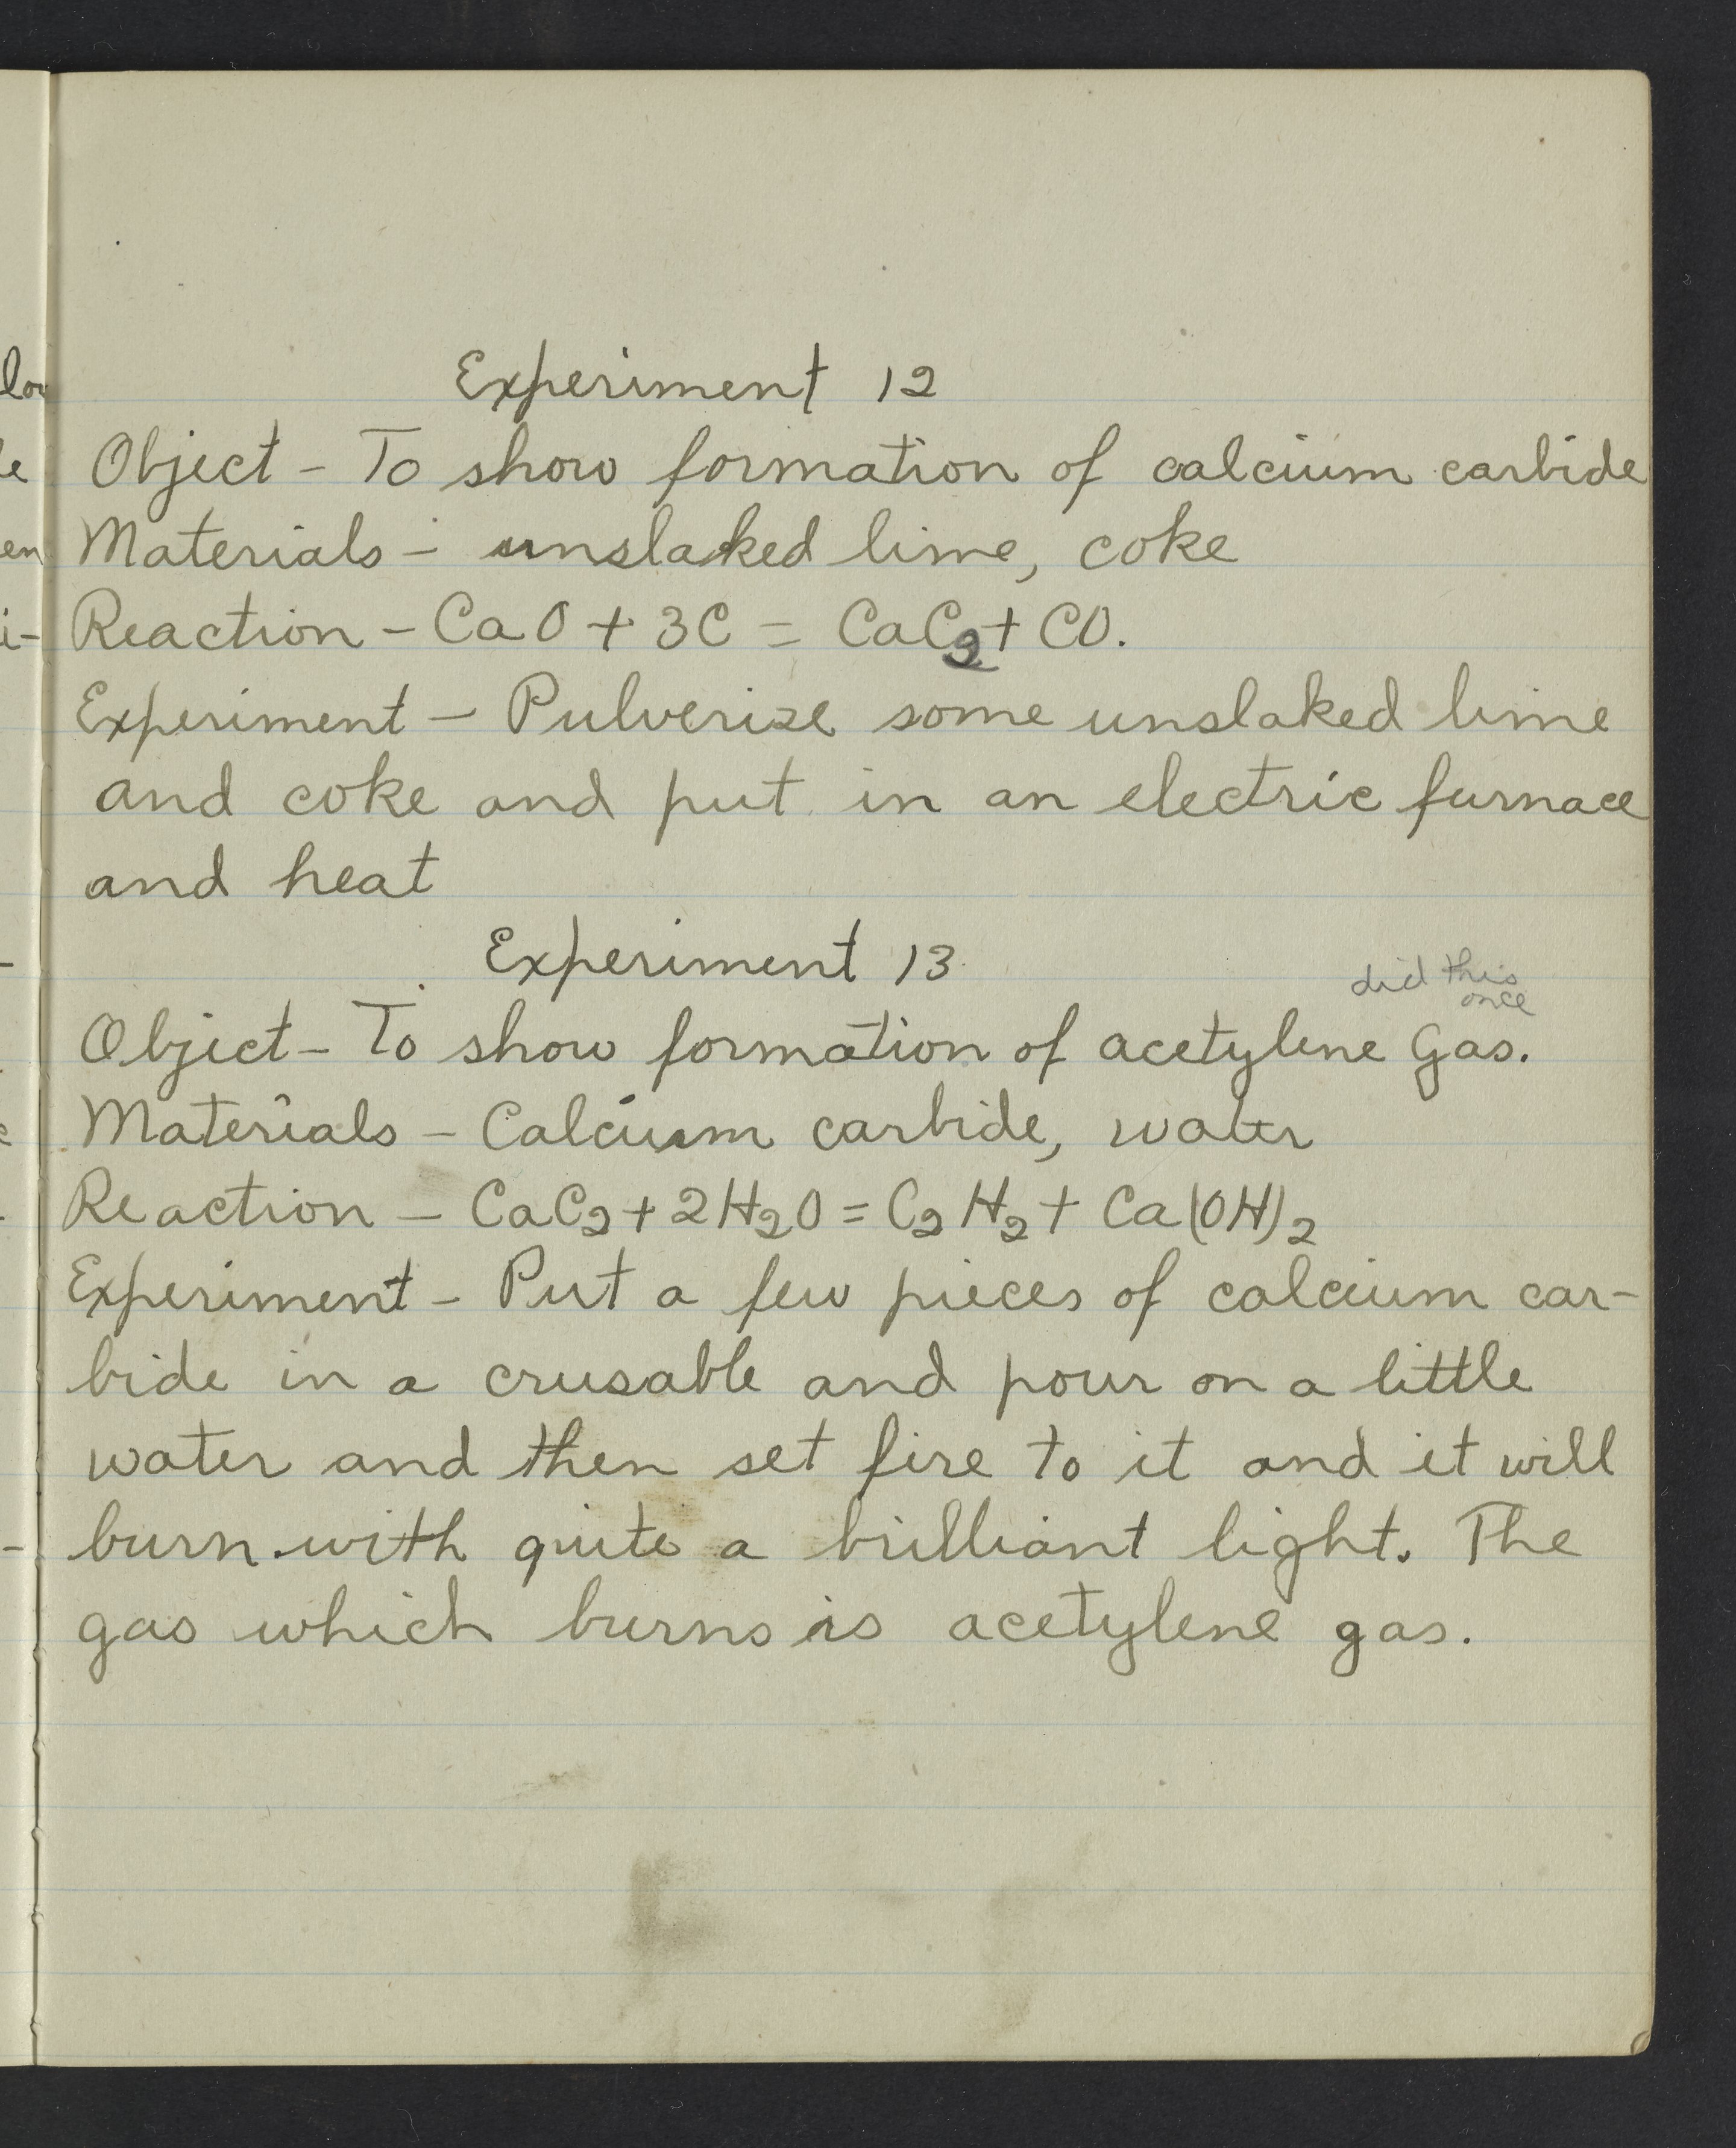 Experiment 12
Object - To show formation of calcium carbide
Materials - unslaked lime, coke
Reaction - CaO + 3C = CaC2 + CO.
Experiment - Pulverize some unslaked lime
and coke and put in an electric furnace
and heat
Experiment 13
did this
once
Object - To show formation of acetylene Gas.
Materials - Calcium carbide, water
Reaction - CaC2 + 2H2O = C2H2 + Ca(OH)2
Experiment - Put a few pieces of calcium car-
bide in a crusable and pour on a little
water and then set fire to it and it will
burn with quite a brilliant light. The
gas which burns is acetylene gas.